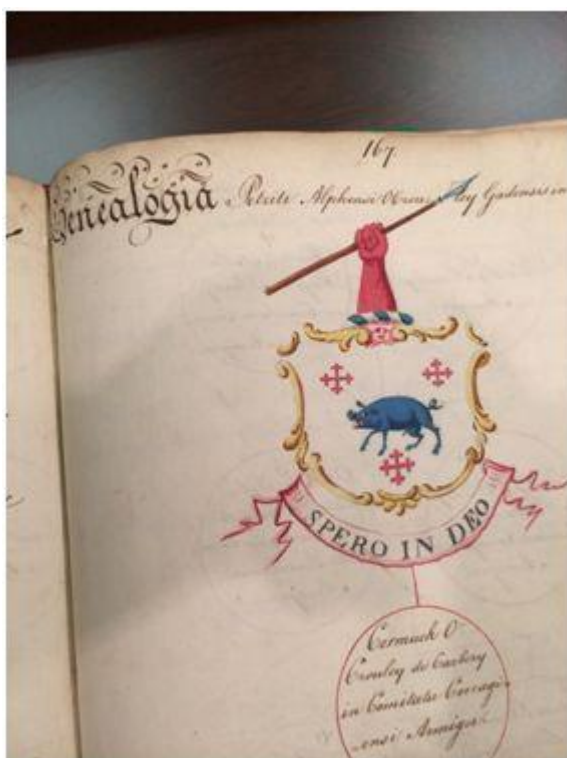 167
Genealogia Alphonsi Gadensis
SPERO IN DEO
Cormack O
Crouley de Carbery
in Comitatu Corcagi
ensi Armiger